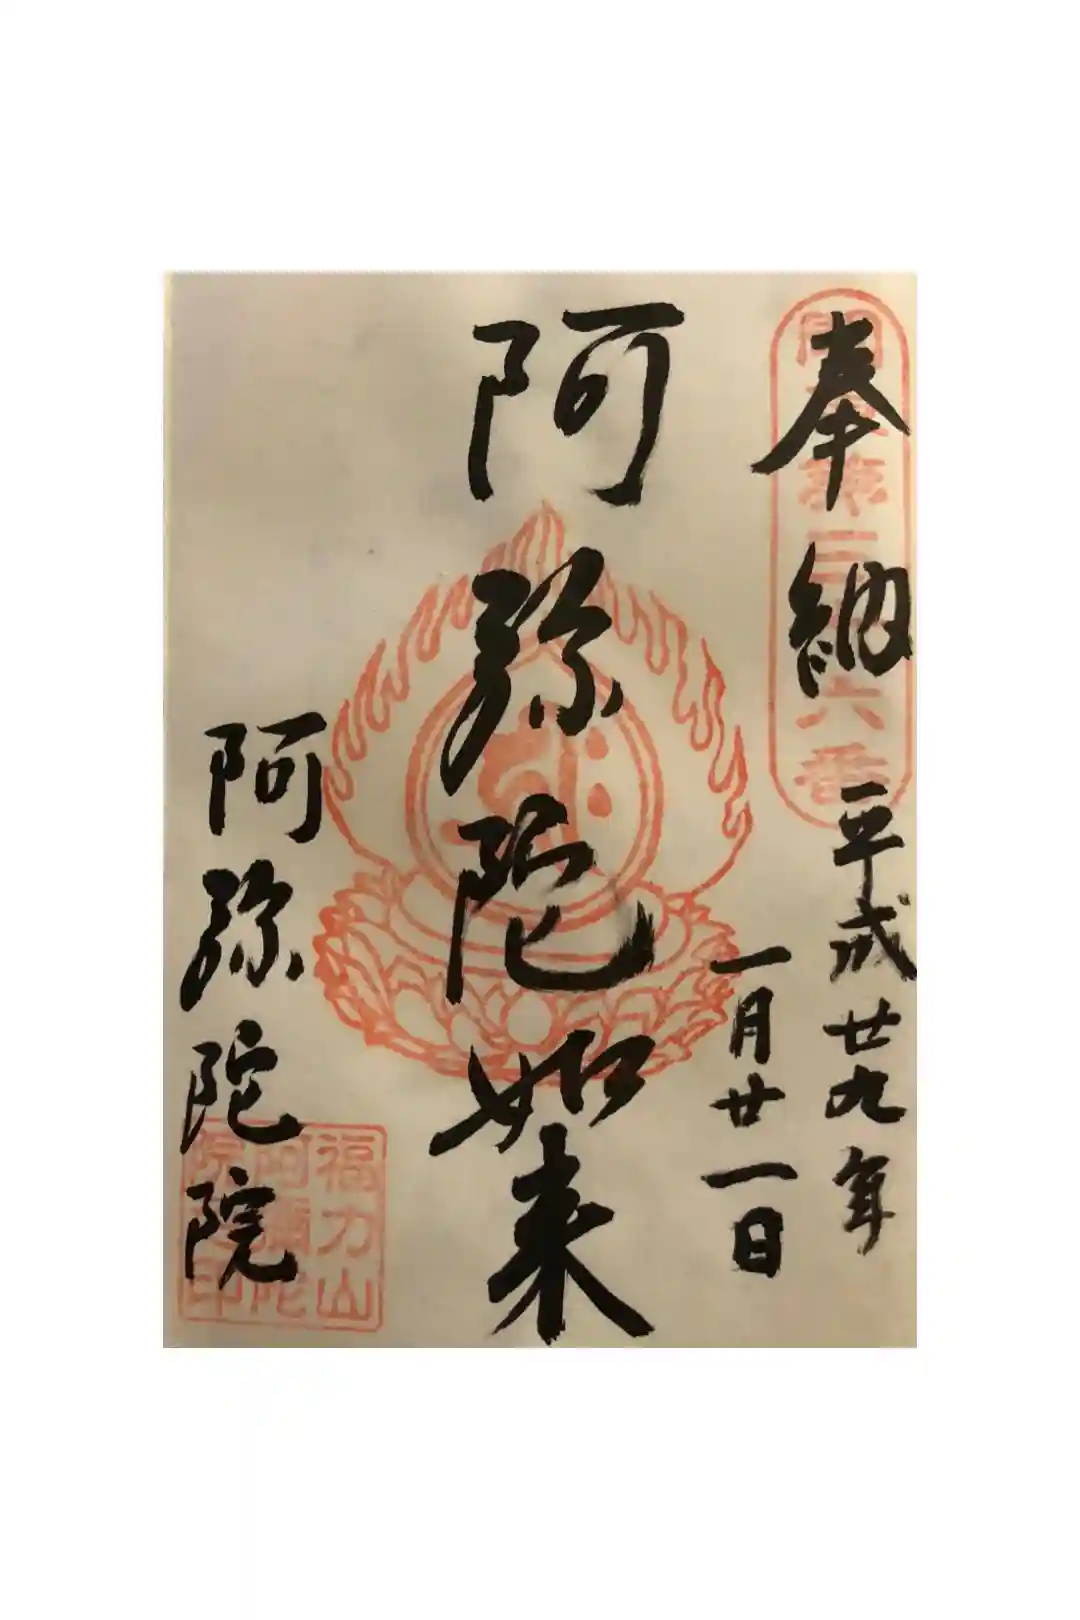 奉納
平成廿九年
一月廿一日
阿弥陀如来
阿弥陀院
福力山
阿彌陀
院
印
六番